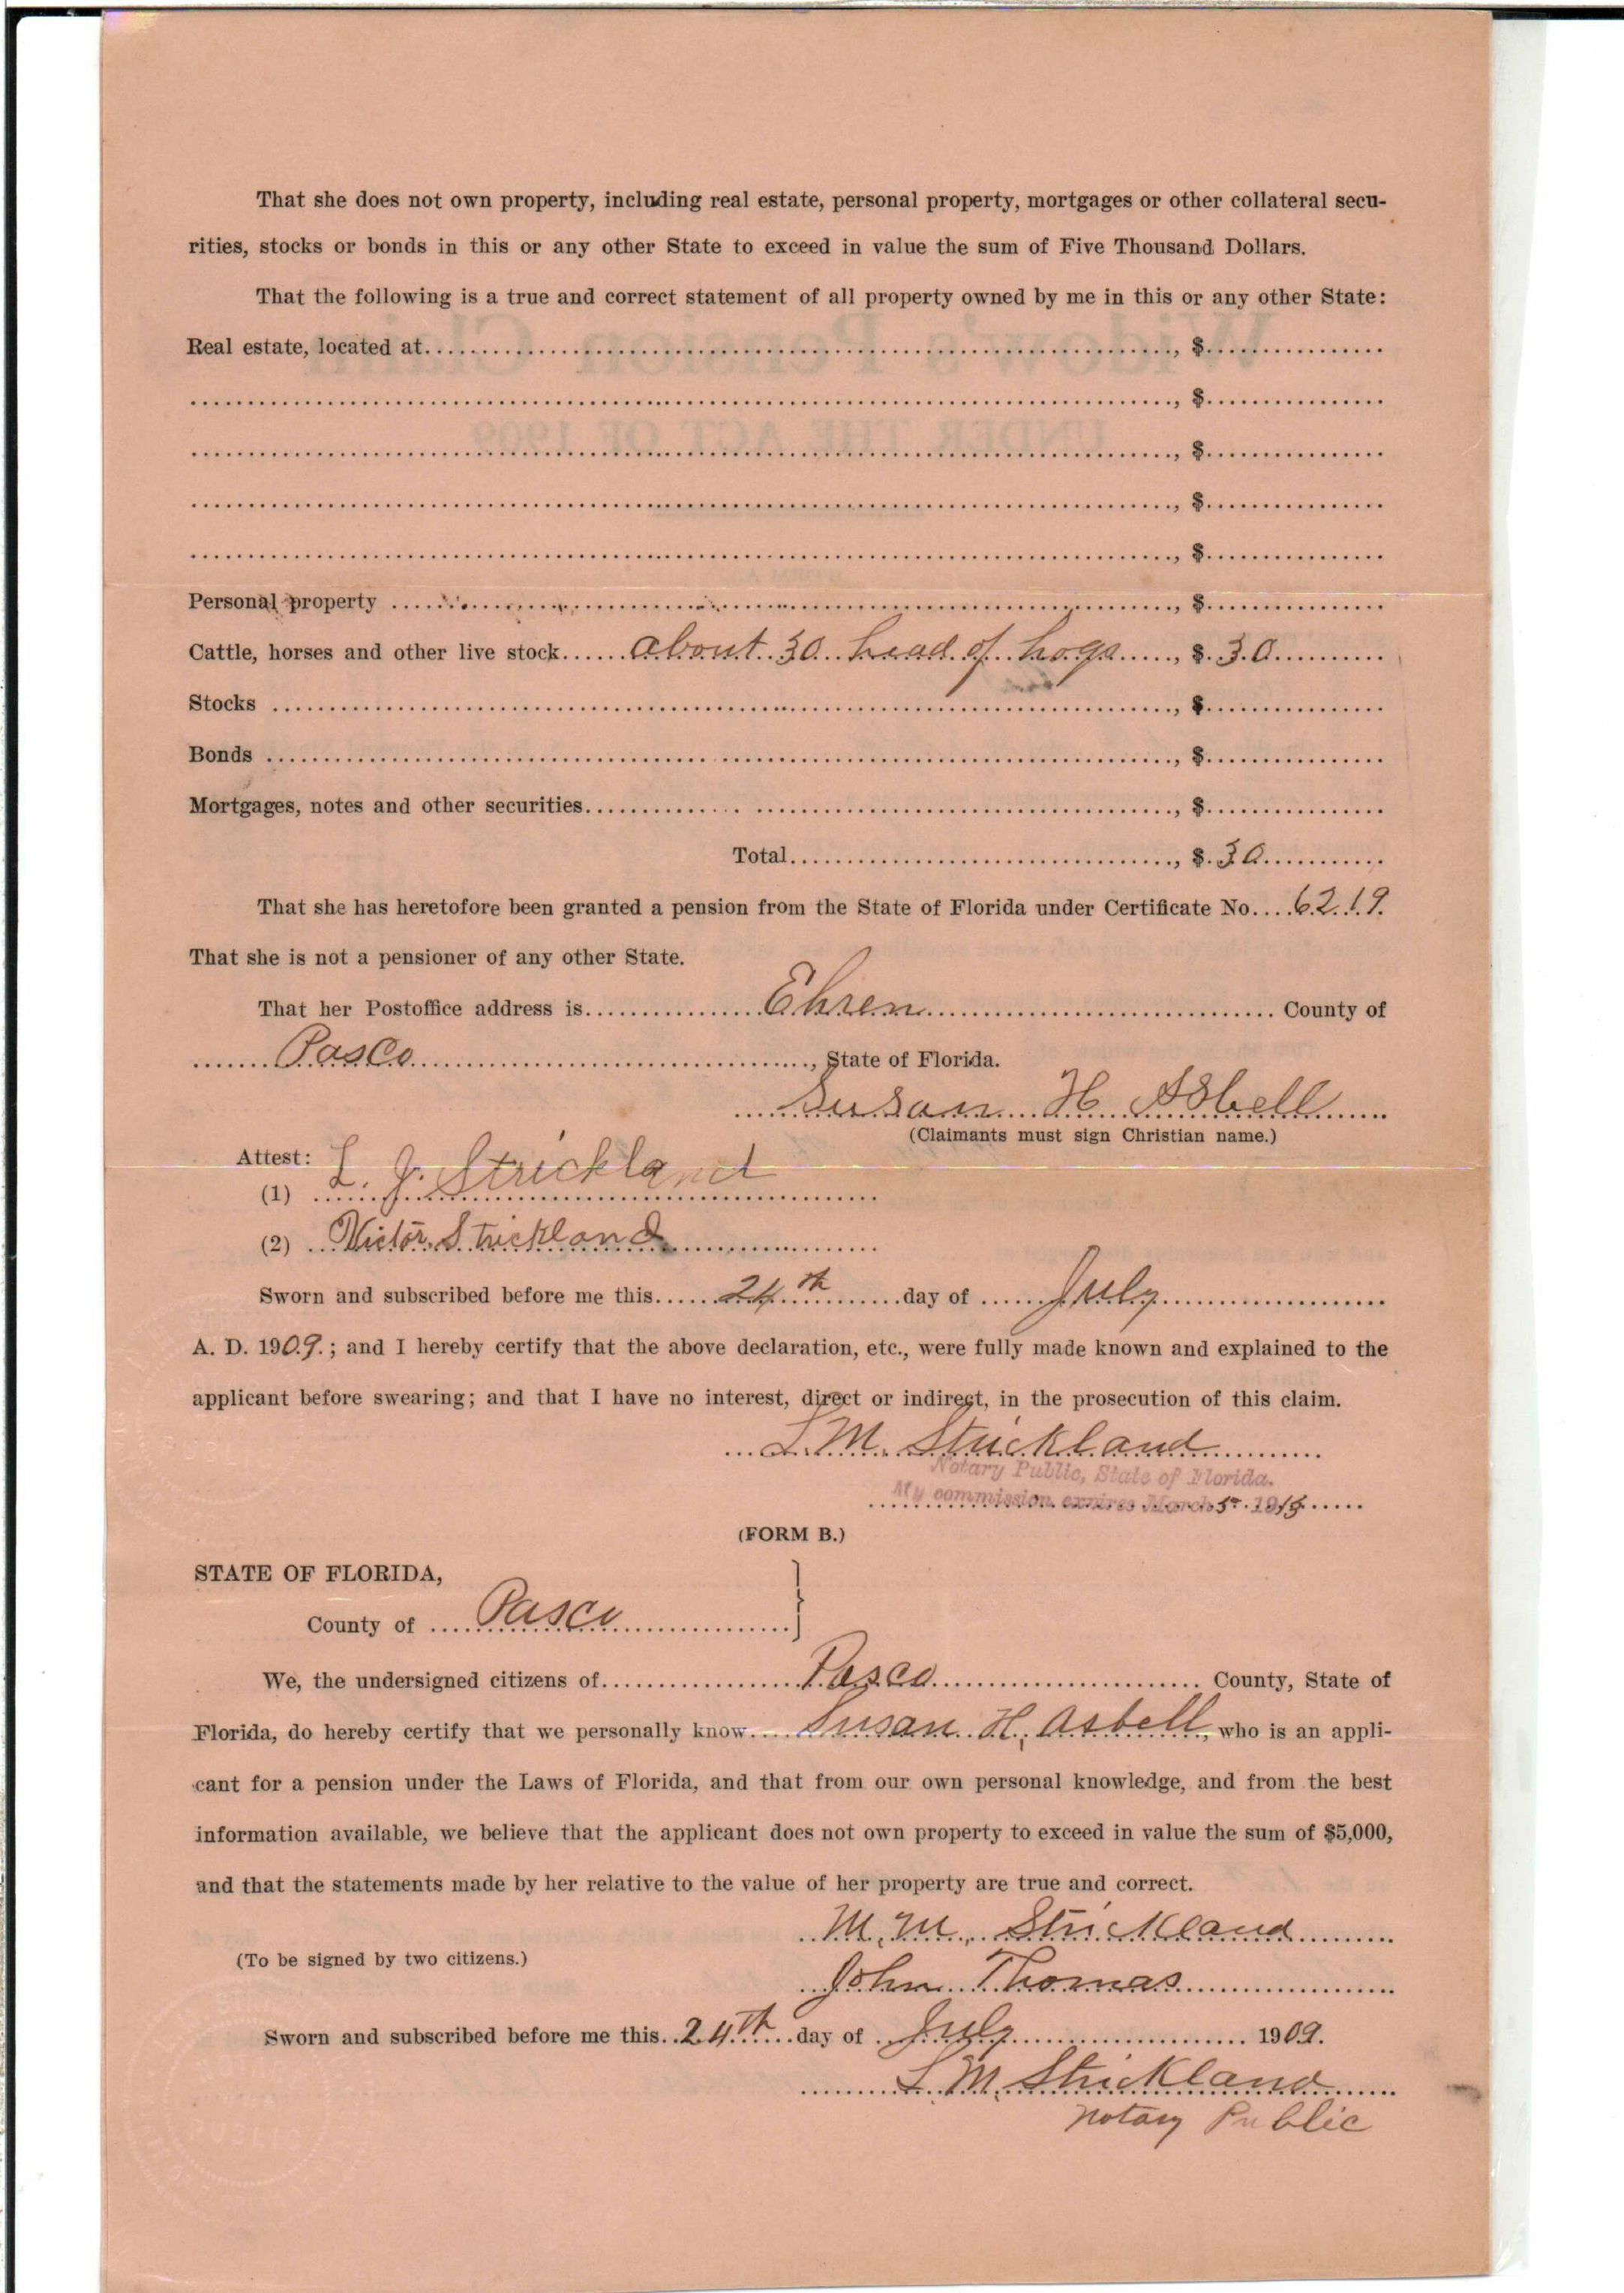 That she does not own property, including real estate, personal property, mortgages or other collateral secu-
rities, stocks or bonds in this or any other State to exceed in value the sum of Five Thousand Dollars.
That the following is a true and correct statement of all property owned by me in this or any other State:
Real estate, located at........, $........
........, $........
........, $........
........, $........
........, $........
Personal property ........, $........
Cattle, horses and other live stock...... about 30 head of hogs ......, $ 30........
Stocks ........, $........
Bonds ........, $........
Mortgages, notes and other securities........, $........
Total........, $ 30........
That she has heretofore been granted a pension from the State of Florida under Certificate No.... 6219.
That she is not a pensioner of any other State.
That her Postoffice address is........ Ehren ........ County of
....... Pasco ........, State of Florida.
Susan H Asbell
(Claimants must sign Christian name.)
Attest:
(1) L. J. Strickland
(2) Victor Strickland
Sworn and subscribed before me this...... 24th ......day of ...... July ........
A. D. 1909.; and I hereby certify that the above declaration, etc., were fully made known and explained to the
applicant before swearing; and that I have no interest, direct or indirect, in the prosecution of this claim.
L. M. Strickland
Notary Public, State of Florida.
My commission expires March 5" 1913
(FORM B.)
STATE OF FLORIDA,
County of .... Pasco ........
We, the undersigned citizens of........ Pasco ........ County, State of
Florida, do hereby certify that we personally know.... Susan H, Asbell, who is an appli-
cant for a pension under the Laws of Florida, and that from our own personal knowledge, and from the best
information available, we believe that the applicant does not own property to exceed in value the sum of $5,000,
and that the statements made by her relative to the value of her property are true and correct.
M. M. Strickland
(To be signed by two citizens.)
John Thomas
Sworn and subscribed before me this.. 24th ....day of .. July ........ 1909.
L. M. Strickland
Notary Public